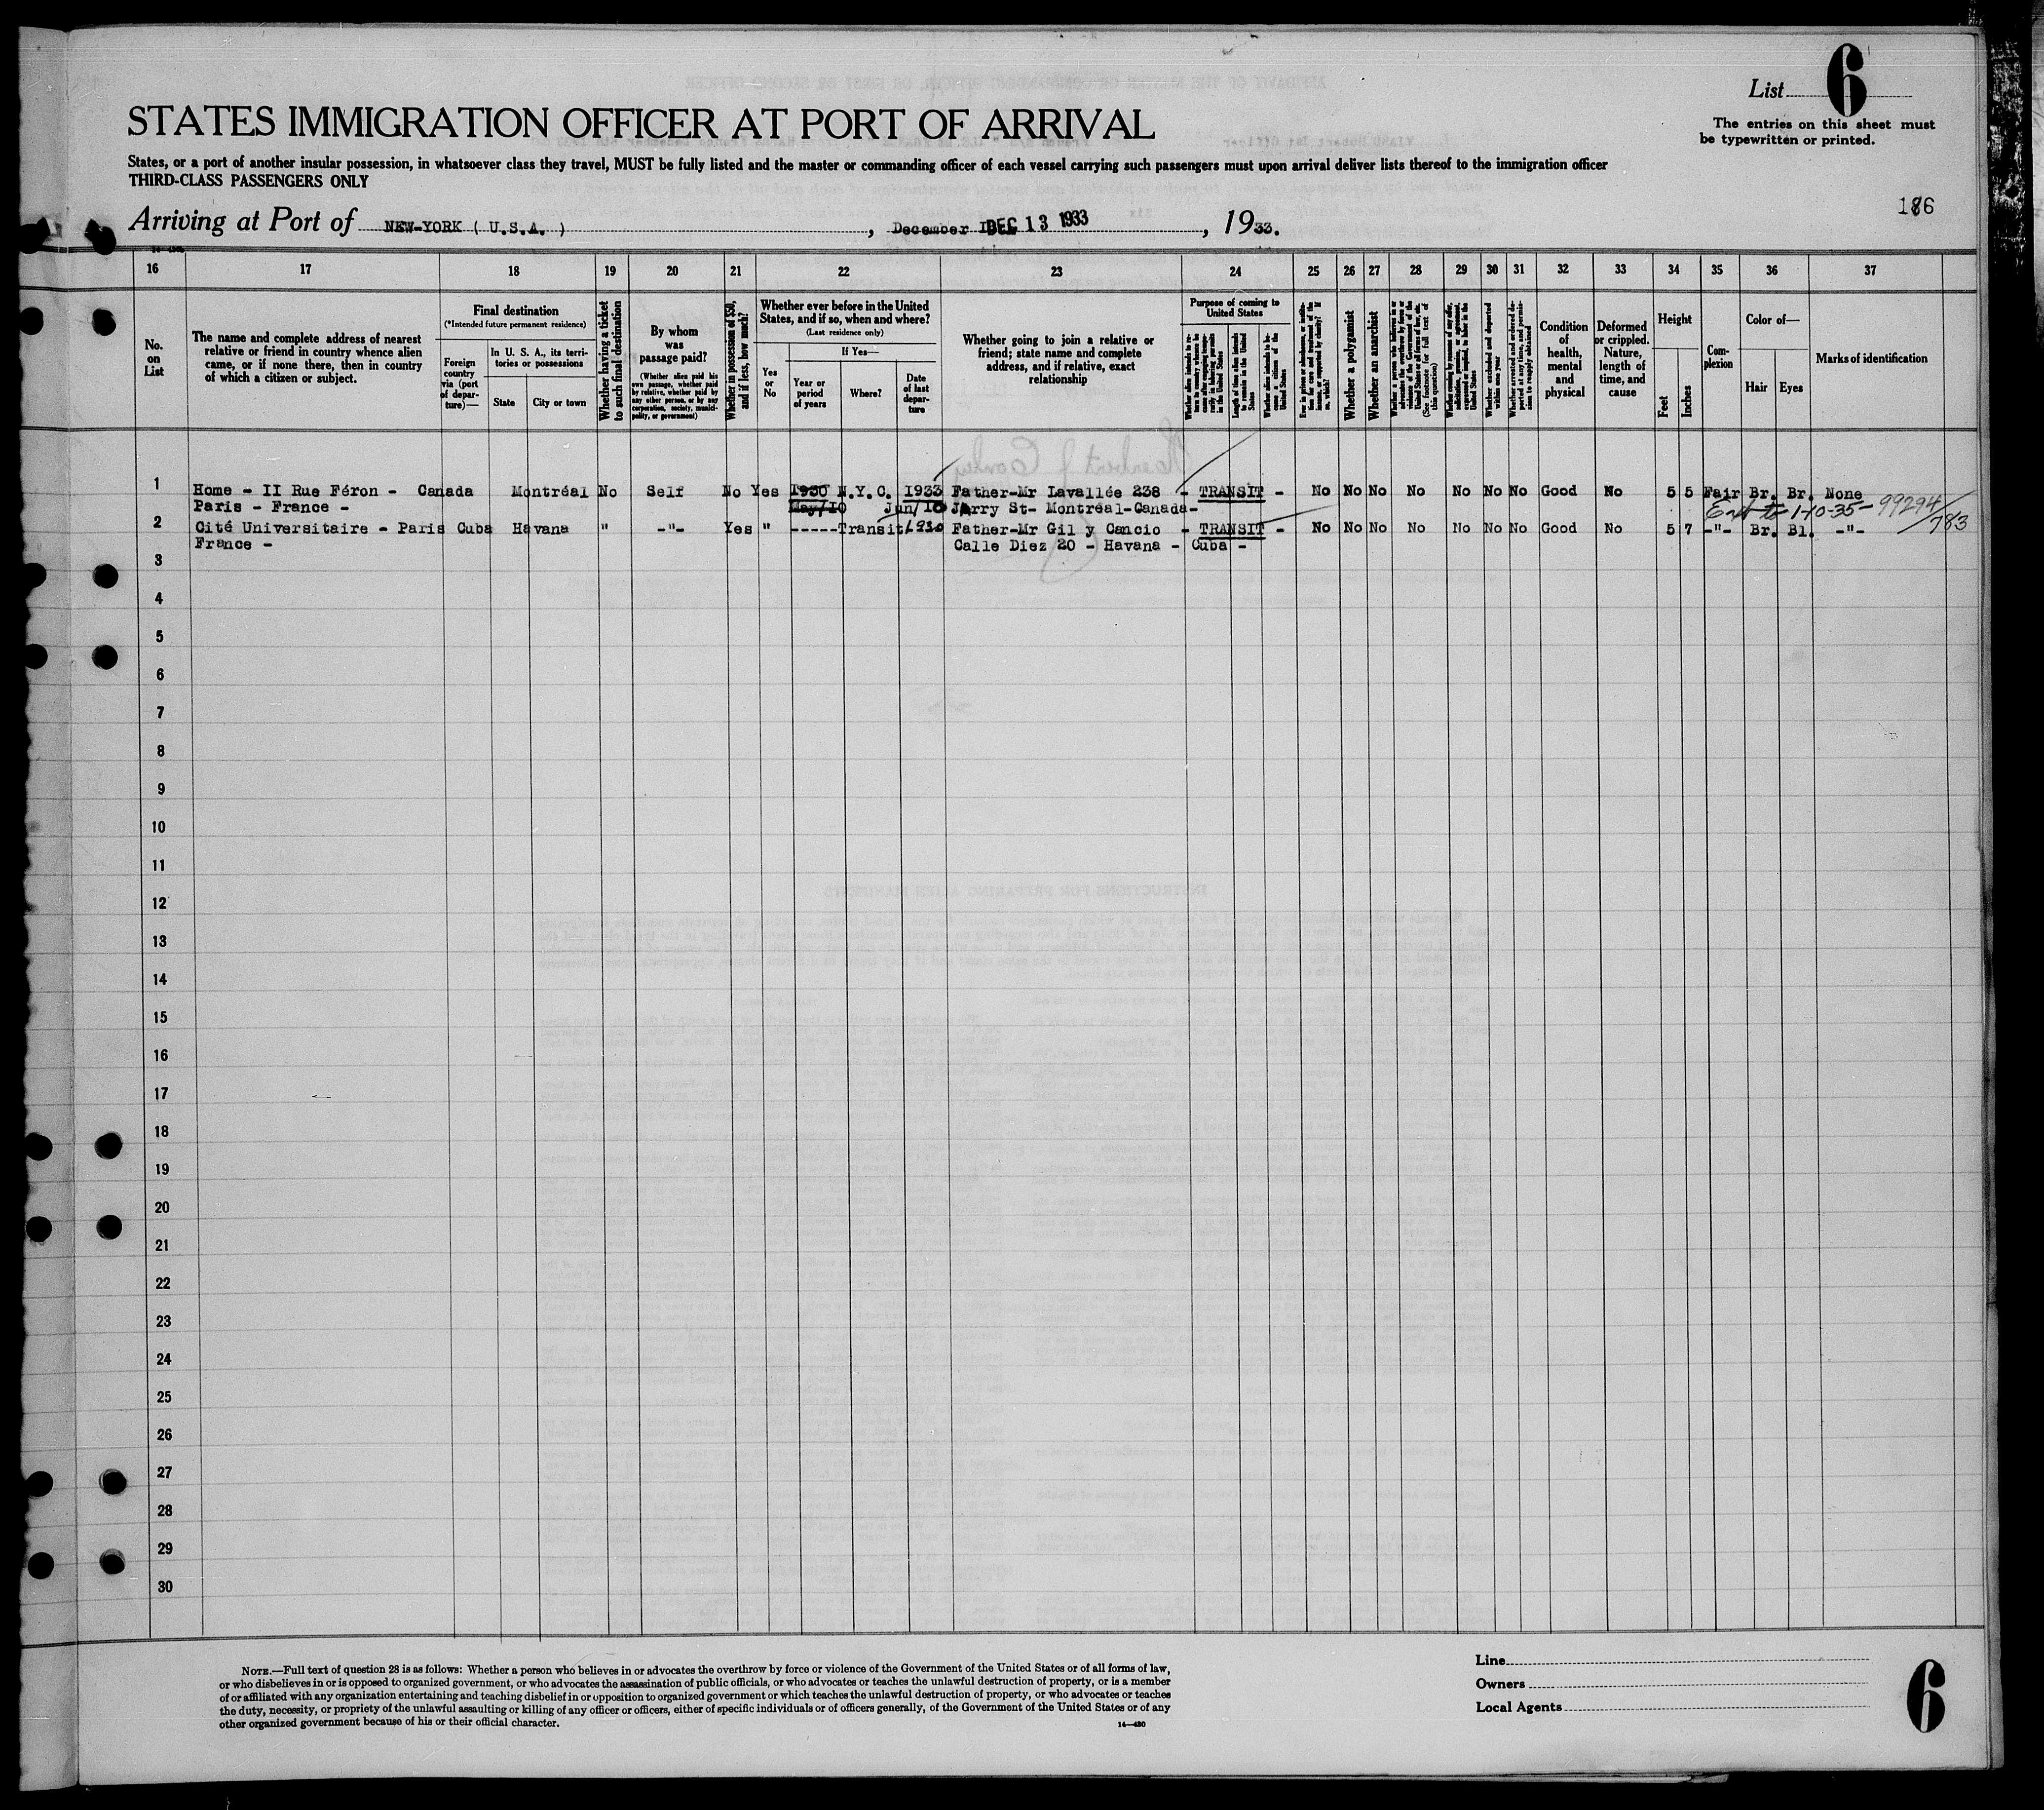 List 6
The entries on this sheet must
be typewritten or printed.
STATES IMMIGRATION OFFICER AT PORT OF ARRIVAL
States, or a port of another insular possession, in whatsoever class they travel, MUST be fully listed and the master or commanding officer of each vessel carrying such passengers must upon arrival deliver lists thereof to the immigration officer
THIRD-CLASS PASSENGERS ONLY
186
Arriving at Port of NEW-YORK ( U.S.A. ) , December DEC 13 1933 , 1933.
16 17 18 19 20 21 22 23 24 25 26 27 28 29 30 31 32 33 34 35 36 37
No.
on
List
The name and complete address of nearest
relative or friend in country whence alien
came, or if none there, then in country
of which a citizen or subject.
Final destination
(*Intended future permanent residence)
Foreign
country
via (port
of depar-
ture)—
In U. S. A., its terri-
tories or possessions
State
City or town
Whether having a ticket
to such final destination
By whom
was
passage paid?
(Whether alien paid his
own passage, whether paid
by relative, whether paid by
any other person, or by any
corporation, society, munici-
pality, or government)
Whether in possession of $50,
and if less, how much?
Whether ever before in the United
States, and if so, when and where?
(Last residence only)
Yes
or
No
If Yes—
Year or
period
of years
Where?
Date
of last
depar-
ture
Whether going to join a relative or
friend; state name and complete
address, and if relative, exact
relationship
Purpose of coming to
United States
Whether alien intends to re-
turn to country whence he
came after engaging tempo-
rarily in laboring pursuits
in the United States
Length of time alien intends
to remain in the United
States
Whether alien intends to be-
come a citizen of the
United States
Whether a polygamist
Whether an anarchist
Whether excluded and deported
within one year
Condition
of
health,
mental
and
physical
Deformed
or crippled.
Nature,
length of
time, and
cause
Height
Feet
Inches
Com-
plexion
Color of—
Hair
Eyes
Marks of identification
1 Home - II Rue Féron - Canada Montréal No Self No Yes 1930 N.Y.C. 1933 Father-Mr Lavallée 238 - TRANSIT - No No No No No No No Good No 5 5 Fair Br. Br. None
Paris - France - May/10 Jun/10 Jarry St- Montréal-Canada- 1-10-35- 99294/783
2 Cité Universitaire - Paris Cuba Havana " -"- Yes " -----Transit 1930 Father-Mr Gil y Cancio - TRANSIT - No No No No No No No Good No 5 7 -"- Br. Bl. -"-
France - Calle Diez 20 - Havana - Cuba -
3
4
5
6
7
8
9
10
11
12
13
14
15
16
17
18
19
20
21
22
23
24
25
26
27
28
29
30
NOTE.—Full text of question 28 is as follows: Whether a person who believes in or advocates the overthrow by force or violence of the Government of the United States or of all forms of law,
or who disbelieves in or is opposed to organized government, or who advocates the assassination of public officials, or who advocates or teaches the unlawful destruction of property, or is a member
of or affiliated with any organization entertaining and teaching disbelief in or opposition to organized government or which teaches the unlawful destruction of property, or who advocates or teaches
the duty, necessity, or propriety of the unlawful assaulting or killing of any officer or officers, either of specific individuals or of officers generally, of the Government of the United States or of any
other organized government because of his or their official character.
14—480
Line
Owners
Local Agents
6